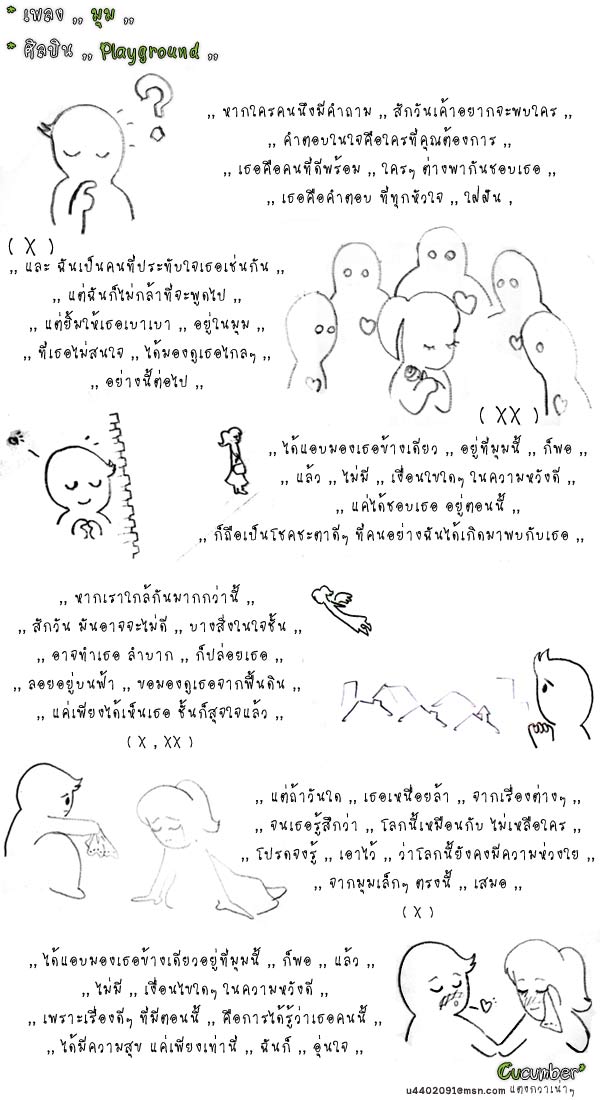 * เพลง ,, มุม ,,
* ศิลปิน ,, Playground ,,
,, หากใครคนนึงมีคำถาม ,, สักวันเค้าอยากจะพบใคร ,,
,, คำตอบในใจคือใครที่คุณต้องการ ,,
,, เธอคือคนที่ดีพร้อม ,, ใครๆ ต่างพากันชอบเธอ ,,
,, เธอคือคำตอบ ที่ทุกหัวใจ ,, ใฝ่ฝัน ,
( X )
,, และ ฉันเป็นคนที่ประทับใจเธอเช่นกัน ,,
,, แต่ฉันก็ไม่กล้าที่จะพูดไป ,,
,, แต่ยิ้มให้เธอเบาเบา ,, อยู่ในมุม ,,
,, ที่เธอไม่สนใจ ,, ได้มองดูเธอไกลๆ ,,
,, อย่างนี้ต่อไป ,,
( XX )
,, ได้แอบมองเธอข้างเดียว ,, อยู่ที่มุมนี้ ,, ก็พอ ,,
,, แล้ว ,, ไม่มี ,, เงื่อนไขใดๆ ในความหวังดี ,,
,, แค่ได้ชอบเธอ อยู่ตอนนี้ ,,
,, ก็ถือเป็นโชคชะตาดีๆ ที่คนอย่างฉันได้เกิดมาพบกับเธอ ,,
,, หากเราใกล้กันมากกว่านี้ ,,
,, สักวัน มันอาจจะไม่ดี ,, บางสิ่งในใจชั้น ,,
,, อาจทำเธอ ลำบาก ,, ก็ปล่อยเธอ ,,
,, ลอยอยู่บนฟ้า ,, ขอมองดูเธอจากพื้นดิน ,,
,, แค่เพียงได้เห็นเธอ ชั้นก็สุขใจแล้ว ,,
( X , XX )
,, แต่ถ้าวันใด ,, เธอเหนื่อยล้า ,, จากเรื่องต่างๆ ,,
,, จนเธอรู้สึกว่า ,, โลกนี้เหมือนกับ ไม่เหลือใคร ,,
,, โปรดจงรู้ ,, เอาไว้ ,, ว่าโลกนี้ยังคงมีความห่วงใย ,,
,, จากมุมเล็กๆ ตรงนี้ ,, เสมอ ,,
( X )
,, ได้แอบมองเธอข้างเดียวอยู่ที่มุมนี้ ,, ก็พอ ,, แล้ว ,,
,, ไม่มี ,, เงื่อนไขใดๆ ในความหวังดี ,,
,, เพราะเรื่องดีๆ ที่มีตอนนี้ ,, คือการได้รู้ว่าเธอคนนี้ ,,
,, ได้มีความสุข แค่เพียงเท่านี้ ,, ฉันก็ ,, อุ่นใจ ,,
Cucumber'
u4402091@msn.com แตงกวาเน่าๆ